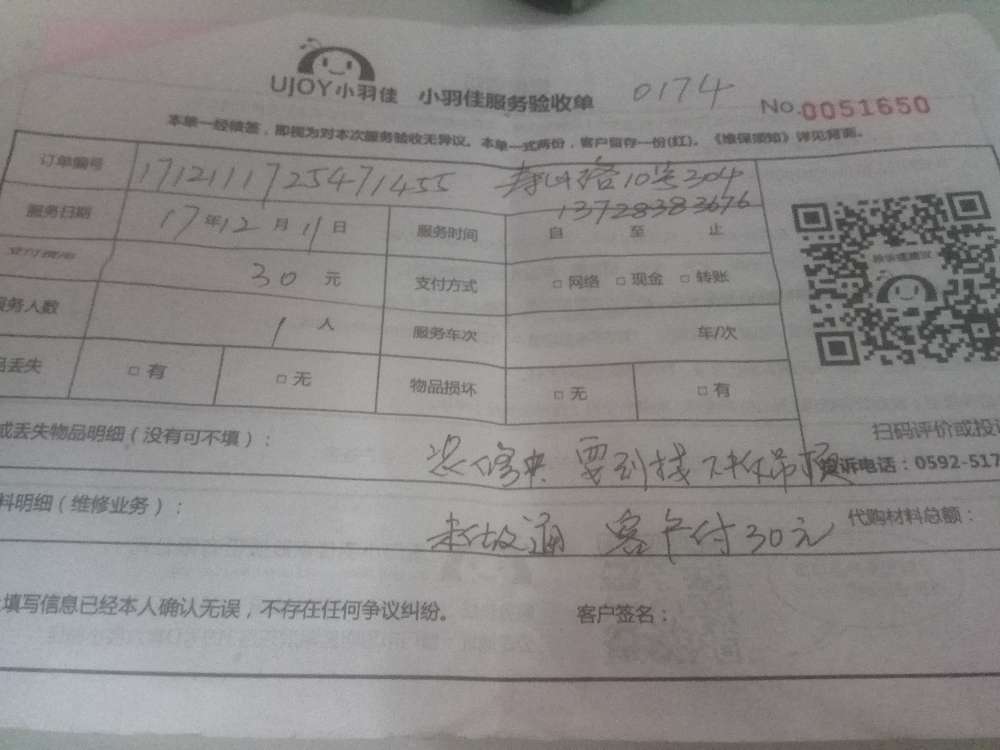 UJOY小羽佳 小羽佳服务验收单 0174 No.0051650
本单一经缋签，即视为对本次服务验收无异议。本单一式两份，客户留存一份(红)。《维保须知》详见背面。
订单编号 1712111725471455 路10号304
13728383676
服务日期 17年12月11日 服务时间 自 至 止
30元 支付方式 □网络 □现金 □转账
服务人数 1人 服务车次 车/次
品丢失 □有 □无 物品损坏 □无 □有
扫码评价或投诉
或丢失物品明细（没有可不填）： 要到 吊顶 投诉电话：0592-517
料明细（维修业务）： 未做通 客户付30元 代购材料总额：
填写信息已经本人确认无误，不存在任何争议纠纷。 客户签名：